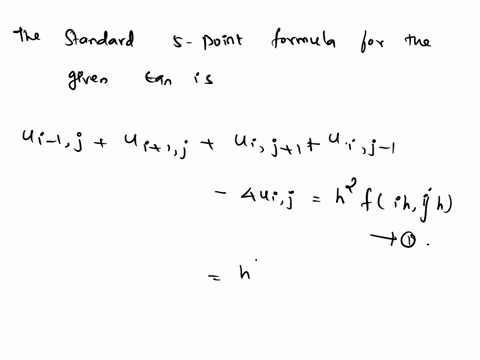 The Standard 5-point formula for the
given eqn is
u i-1,j + u i+1,j + u i,j+1 + u i,j-1
- 4u i,j = h² f(ih, jh)
→ ①.
= h